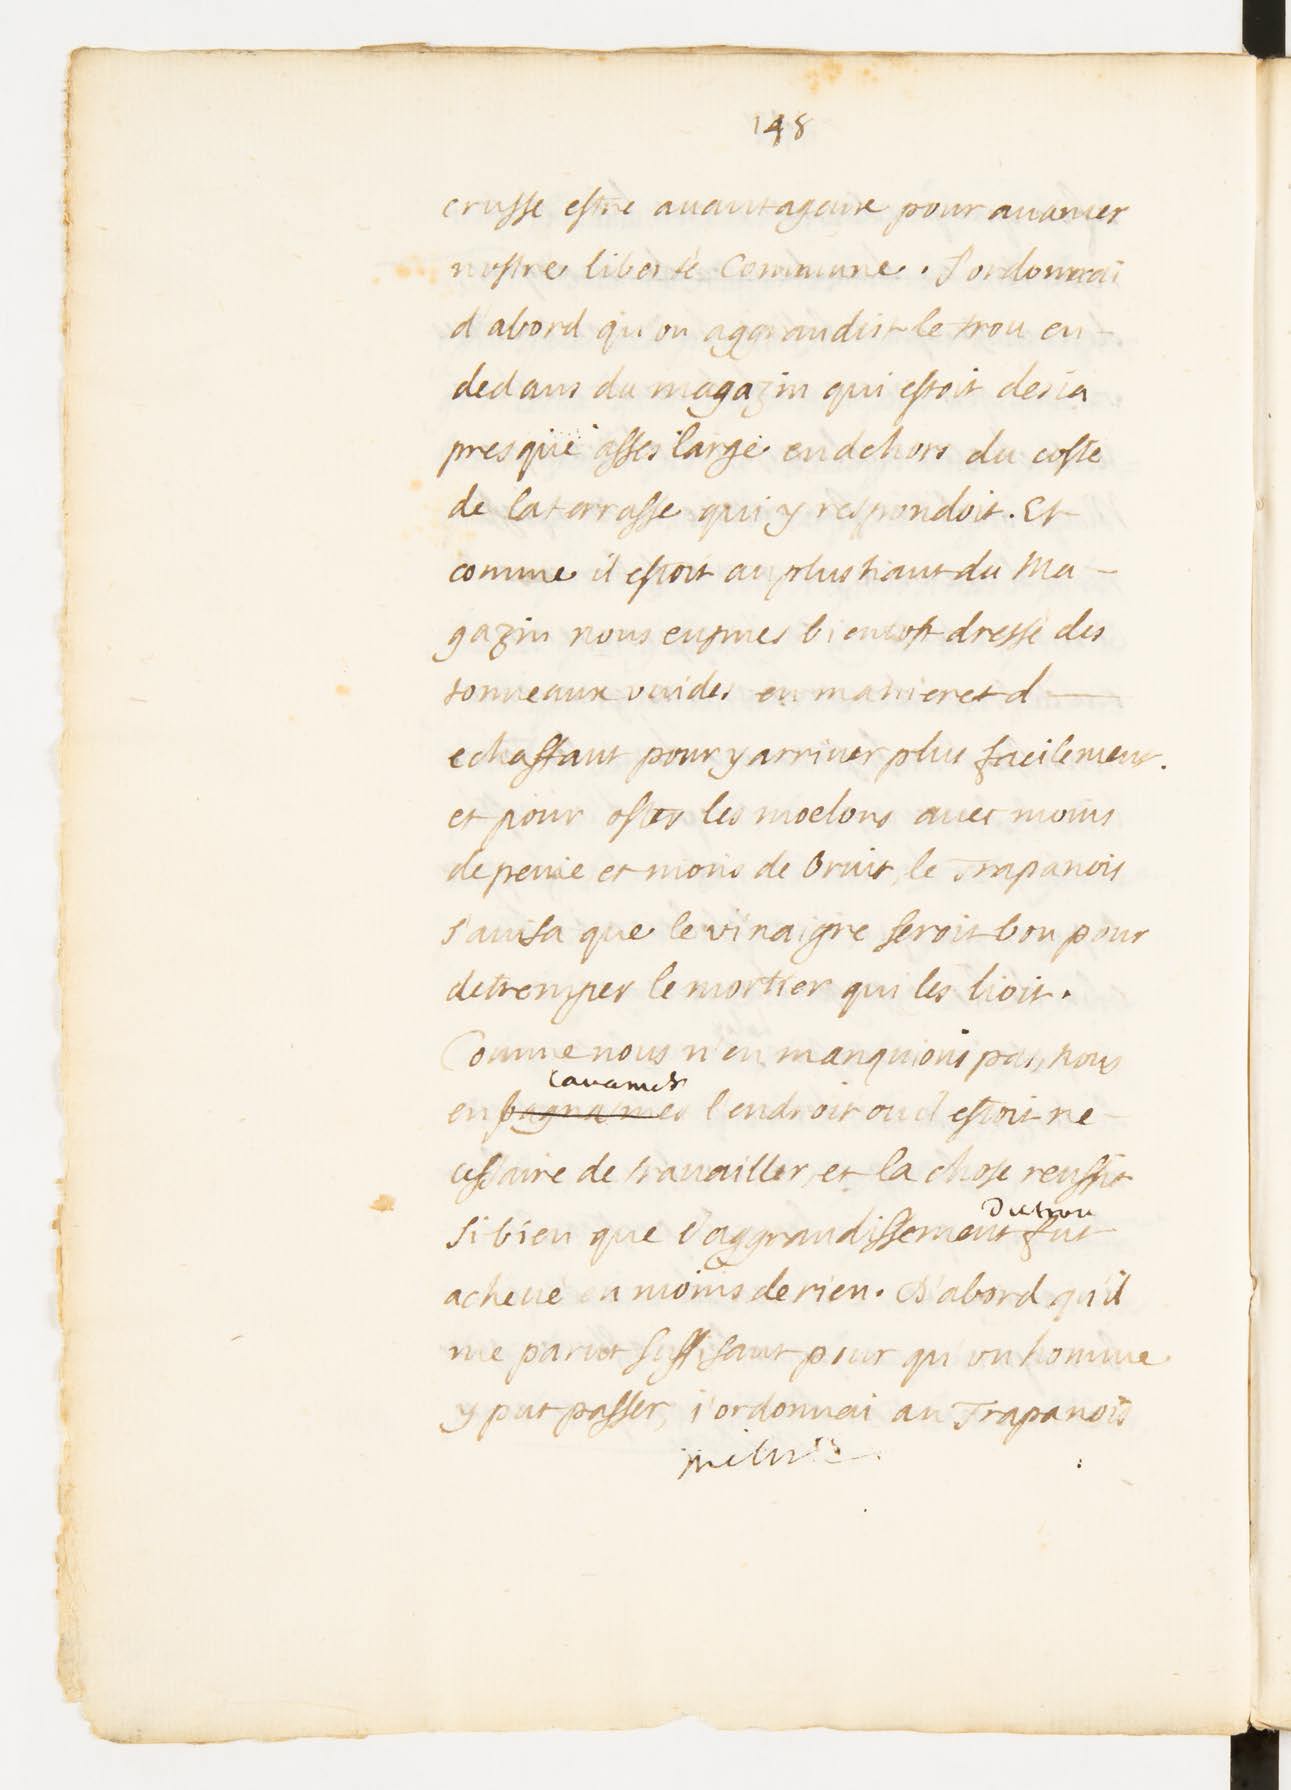 148
crusse estre auantageux pour auancer
nostre liberté Commune. J'ordonnai
d'abord qu'on aggrandist le trou en-
dedans du magazin qui estoit desia
presque asses large en dehors du coste
de la terrasse qui y respondoit. Et
comme il estoit au plus haut du Ma-
gazin nous eusmes bientost dressé des
tonneaux vuides en maniere d
echaffaut pour y arriuer plus facilement.
et pour oster les moelons auec moins
de peine et moins de bruit, le Trapanois
s'auisa que le vinaigre seroit bon pour
detremper le mortier qui les lioit.
Comme nous n'en manquions pas, nous
lauames
en bagnames l'endroit ou il estoit ne-
cessaire de trauailler, et la chose reussit
du trou
si bien que l'aggrandissement fut
acheué en moins de rien. D'abord qu'il
me parut suffisant pour qu'un homme
y put passer, j'ordonnai au Trapanois